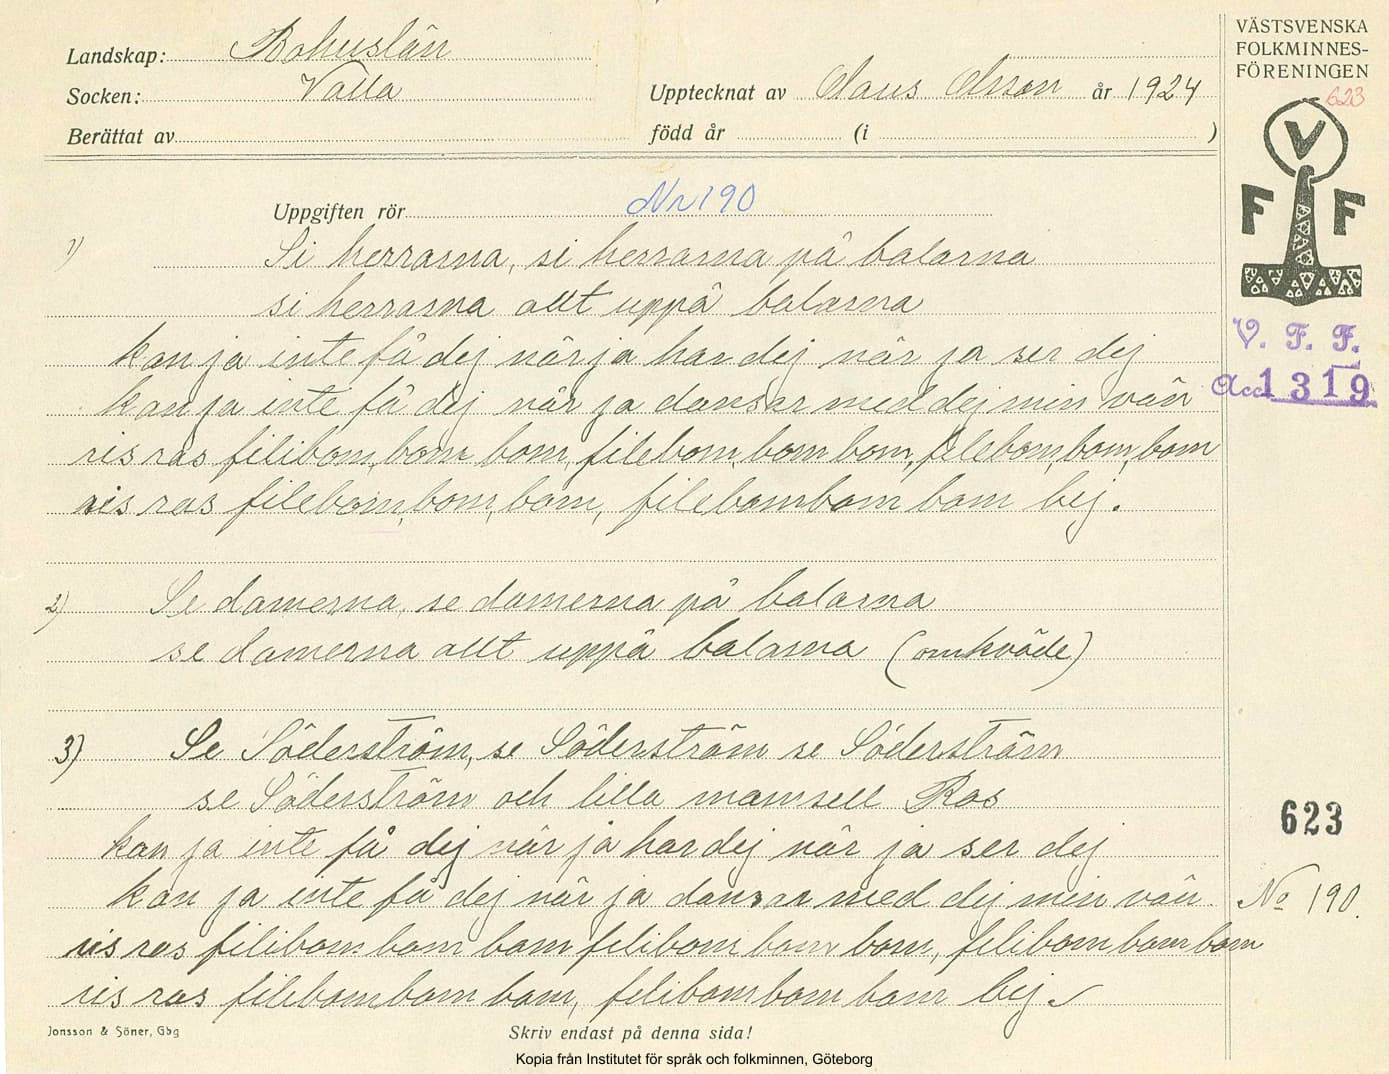 Landskap: Bohuslän
Socken: Valla
Berättat av
Upptecknat av Claus Olsson år 1924
född år (i )
VÄSTSVENSKA
FOLKMINNES-
FÖRENINGEN
623
V
F F
V. F. F.
Acc 1319
Uppgiften rör Nr 190
1) Si herrarna, si herrarna på balarna
si herrarna allt uppå balarna
kan ja inte få dej när ja har dej när ja ser dej
kan ja inte få dej när ja dansar med dej min vän
ris ras filibom, bom bom, filebom, bom bom, filebom, bom, bom
ris ras filebom, bom, bom, filebombom bom hej.
2) Se damerna, se damerna på balarna
se damerna allt uppå balarna (omkväde)
3) Se Söderström, se Söderström se Söderström
se Söderström och lilla mamsell Ros
kan ja inte få dej när ja har dej när ja ser dej
kan ja inte få dej när ja dansar med dej min vän
ris ras filibom bom bom filibom bom bom, filibom bom bom
ris ras filebombom bom, filibombom bom hej.
623
No 190.
Jonsson & Söner, Gbg
Skriv endast på denna sida!
Kopia från Institutet för språk och folkminnen, Göteborg